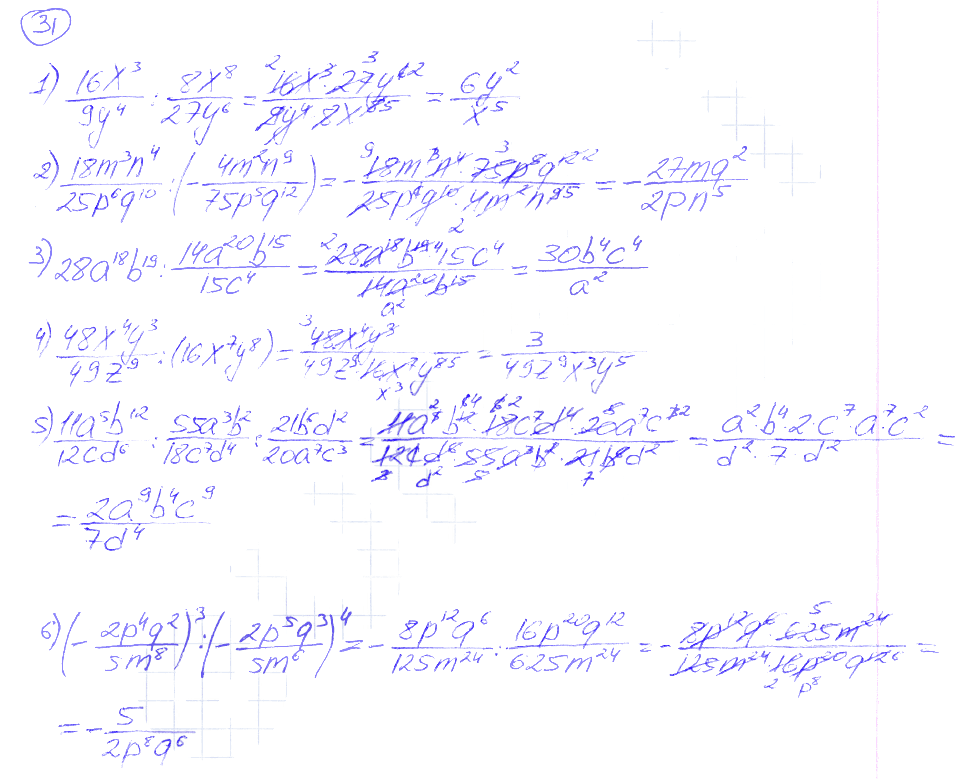 31
1) 16x³/9y⁴ : 8x⁸/27y⁶ = 16x³·27y⁶/9y⁴·8x⁸ = 6y²/x⁵
2) 18m³n⁴/25p⁶q¹⁰ : (-4m²n⁹/75p⁵q¹²) = -18m³n⁴·75p⁵q¹²/25p⁶q¹⁰·4m²n⁹ = -27mq²/2pn⁵
3) 28a¹⁸b¹⁹ : 14a²⁰b¹⁵/15c⁴ = 28a¹⁸b¹⁹15c⁴/14a²⁰b¹⁵ = 30b⁴c⁴/a²
4) 48x⁴y³/49z⁹ : (16x⁷y⁸) = 48x⁴y³/49z⁹·16x⁷y⁸ = 3/49z⁹x³y⁵
5) 11a⁵b¹²/12cd⁶ : 55a³b²/18c⁷d⁴ : 21b⁶d²/20a⁷c³ = 11a⁵b¹²·18c⁷d⁴·20a⁷c³/12cd⁶·55a³b²·21b⁶d² = a²·b⁴·2·c⁷·a⁷c²/d²·7·d² =
= 2a⁹b⁴c⁹/7d⁴
6) (-2p⁴q²/5m⁸)³ : (-2p⁵q³/5m⁶)⁴ = -8p¹²q⁶/125m²⁴ : 16p²⁰q¹²/625m²⁴ = -8p¹²q⁶·625m²⁴/125m²⁴·16p²⁰q¹² =
= -5/2p⁸q⁶